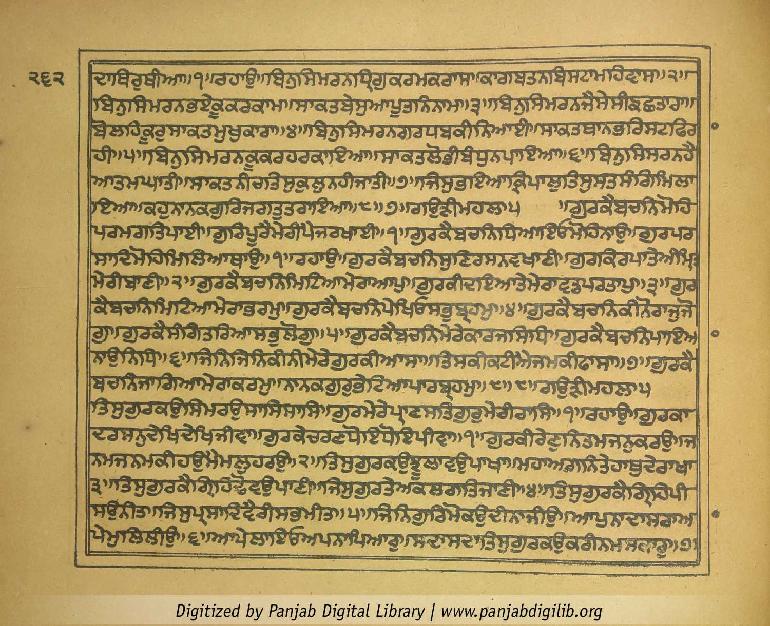 ੨੬੨
ਦਾਬਿਰੁਥੀਆ॥੧॥ਰਹਾਉ॥ਬਿਨੁਸਿਮਰਨਧ੍ਰਿਗੁਕਰਮਕਰਾਸ॥ਕਾਗਬਤਨਬਿਸਟਾਮਹਿਵਾਸ॥੨॥
ਬਿਨੁਸਿਮਰਨਭਏਕੂਕਰਕਾਮ॥ਸਾਕਤਬੇਸੁਆਪੂਤਨਿਨਾਮ॥੩॥ਬਿਨੁਸਿਮਰਨਜੈਸੇਸੀਙਛਤਾਰਾ॥
ਬੋਲਹਿਕੂਰੁਸਾਕਤਮੁਖੁਕਾਰਾ॥੪॥ਬਿਨੁਸਿਮਰਨਗਰਧਬਕੀਨਿਆਈ॥ਸਾਕਤਥਾਨਭਰਿਸਟਫਿਰ
ਹੀ॥੫॥ਬਿਨੁਸਿਮਰਨਕੂਕਰਹਰਕਾਇਆ॥ਸਾਕਤਲੋਭੀਬੰਧੁਨਪਾਇਆ॥੬॥ਬਿਨੁਸਿਮਰਨਹੈ
ਆਤਮਘਾਤੀ॥ਸਾਕਤਨੀਚਤਿਸੁਕੁਲੁਨਹੀਜਾਤੀ॥੭॥ਜਿਸੁਭਇਆਕ੍ਰਿਪਾਲੁਤਿਸੁਸਤਸੰਗਿਮਿਲਾ
ਇਆ॥ਕਹੁਨਾਨਕਗੁਰਿਜਗਤੁਤਰਾਇਆ॥੮॥੭॥ਗਉੜੀਮਹਲਾ੫ ॥ਗੁਰਕੈਬਚਨਿਮੋਹਿ
ਪਰਮਗਤਿਪਾਈ॥ਗੁਰਿਪੂਰੈਮੇਰੀਪੈਜਰਖਾਈ॥੧॥ਗੁਰਕੈਬਚਨਿਧਿਆਇਓਮੋਹਿਨਾਉ॥ਗੁਰਪਰ
ਸਾਦਿਮੋਹਿਮਿਲਿਆਥਾਉ॥੧॥ਰਹਾਉ॥ਗੁਰਕੈਬਚਨਿਸੁਣਿਰਸਨਵਖਾਣੀ॥ਗੁਰਕਿਰਪਾਤੇਅੰਮ੍ਰਿ
ਮੇਰੀਬਾਣੀ॥੨॥ਗੁਰਕੈਬਚਨਿਮਿਟਿਆਮੇਰਾਆਪੁ॥ਗੁਰਕੀਦਇਆਤੇਮੇਰਾਵਡਪਰਤਾਪੁ॥੩॥ਗੁਰ
ਕੈਬਚਨਿਮਿਟਿਆਮੇਰਾਭਰਮੁ॥ਗੁਰਕੈਬਚਨਿਪੇਖਿਓਸਭੁਬ੍ਰਹਮੁ॥੪॥ਗੁਰਕੈਬਚਨਿਕੀਨੋਰਾਜੁਜੋ
ਗੁ॥ਗੁਰਕੈਸੰਗਿਤਰਿਆਸਭੁਲੋਗੁ॥੫॥ਗੁਰਕੈਬਚਨਿਮੇਰੇਕਾਰਜਸਿਧਿ॥ਗੁਰਕੈਬਚਨਿਪਾਇਆ
ਨਾਉਨਿਧਿ॥੬॥ਜਿਨਿਜਿਨਿਕੀਨੀਮੇਰੇਗੁਰਕੀਆਸਾ॥ਤਿਸਕੀਕਟੀਐਜਮਕੀਫਾਸਾ॥੭॥ਗੁਰਕੈ
ਬਚਨਿਜਾਗਿਆਮੇਰਾਕਰਮੁ॥ਨਾਨਕਗੁਰੁਭੇਟਿਆਪਾਰਬ੍ਰਹਮੁ॥੮॥੮॥ਗਉੜੀਮਹਲਾ੫
ਤਿਸੁਗੁਰਕਉਸਿਮਰਉਸਾਸਿਸਾਸਿ॥ਗੁਰੁਮੇਰੇਪ੍ਰਾਣਸਤਿਗੁਰੁਮੇਰੀਰਾਸਿ॥੧॥ਰਹਾਉ॥ਗੁਰਕਾ
ਦਰਸਨੁਦੇਖਿਦੇਖਿਜੀਵਾ॥ਗੁਰਕੇਚਰਣਧੋਇਧੋਇਪੀਵਾ॥੧॥ਗੁਰਕੀਰੇਣੁਨਿਤਮਜਨੁਕਰਉ॥ਜ
ਨਮਜਨਮਕੀਹਉਮੈਮਲੁਹਰਉ॥੨॥ਤਿਸੁਗੁਰਕਉਝੂਲਾਵਉਪਾਖਾ॥ਮਹਾਅਗਨਿਤੇਹਾਥੁਦੇਰਾਖਾ
੩॥ਤਿਸੁਗੁਰਕੈਗ੍ਰਿਹਿਢੋਵਉਪਾਣੀ॥ਜਿਸੁਗੁਰਤੇਅਕਲਗਤਿਜਾਣੀ॥੪॥ਤਿਸੁਗੁਰਕੈਗ੍ਰਿਹਿਪੀ
ਸਉਨੀਤ॥ਜਿਸੁਪਰਸਾਦਿਵੈਰੀਸਭਮੀਤ॥੫॥ਜਿਨਿਗੁਰਿਮੋਕਉਦੀਨਾਜੀਉ॥ਆਪੁਨਾਦਾਸਰਾਅ
ਪੇਮੁਲਿਲੀਉ॥੬॥ਆਪੇਲਾਇਓਅਪਨਾਪਿਆਰੁ॥ਸਦਾਸਦਾਤਿਸੁਗੁਰਕਉਕਰੀਨਮਸਕਾਰੁ॥੭॥
Digitized by Panjab Digital Library | www.panjabdigilib.org